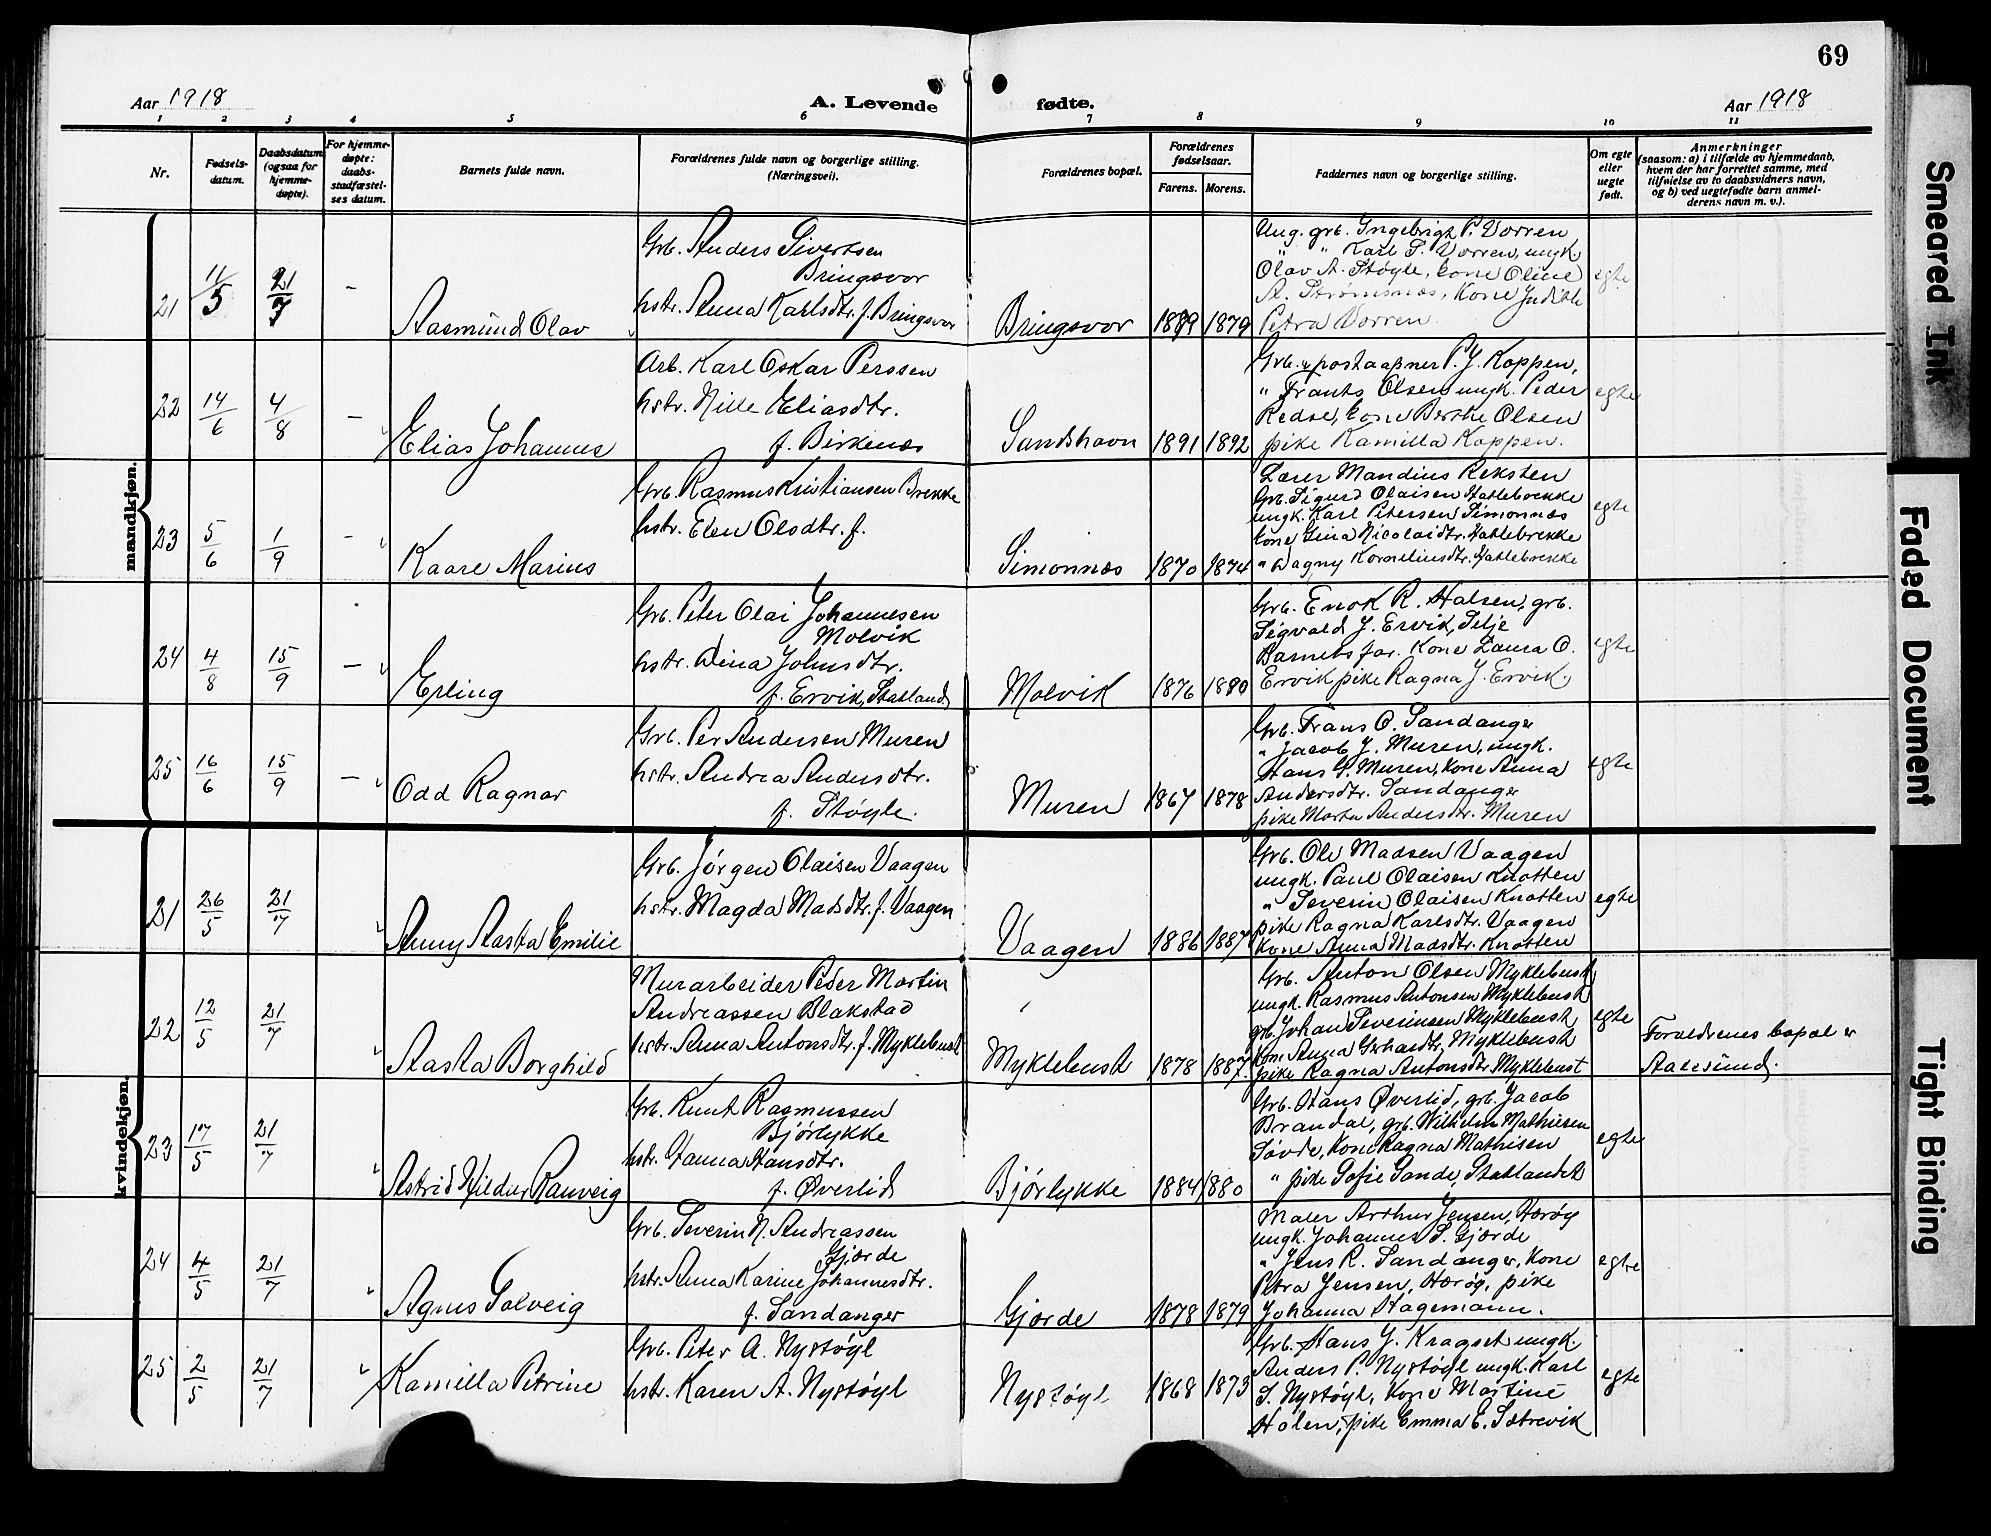 69
Aar 1918
A. Levende fødte.
Aar 1918
1 2 3 4 5 6 7 8 9 10 11
Nr.
Fødsels-
datum.
Daabsdatum
(ogsaa for
hjemme-
døpte).
For hjemme-
døpte:
daabs-
stadfæstel-
ses datum.
Barnets fulde navn.
Forældrenes fulde navn og borgerlige stilling.
(Næringsvei).
Forældrenes bopæl.
Forældrenes
fødselsaar.
Farens. Morens.
Faddernes navn og borgerlige stilling.
Om egte
eller
uegte
født.
Anmerkninger
(saasom: a) i tilfælde av hjemmedaab,
hvem der har forrettet samme, med
tilføielse av to daabsvidners navn,
og b) ved uegtefødte barn anmel-
derens navn m. v.).
mandkjøn.
21 11/5 21/7 - Aasmund Olav
Grb. Anders Sivertsen
Bringsvor
hstr. Anna Karlsdtr. f. Bringsvor
Bringsvor 1879
Ung. grb. Ingebrigt P. Vorren
" " Karl S. Vorren, ungk.
Olav A. Støyle, kone Oline
A. Strømsnæs, Kone Indille
Petra Vorren.
egte
22 14/6 4/8 - Elias Johannes
Arb. Karl Oskar Perssen
hstr. Nille Eliasdtr.
f. Birkenæs
Sandshavn 1891 1892
Grb. & postaapner P. J. Koppen,
" Frants Olsen ungk. Peder
Redse, kone Berthe Olsen
pike Kamilla Koppen.
egte
23 5/6 1/9 - Kaare Marius
Grb. Rasmus Kristiansen Brekke
hstr. Elen Olsdtr. f.
Simonnæs 1870 1874
Lærer Mandius Reksten
Grb. Sigurd Olaisen Hatlebrekke
ungk. Karl Petersen Simonnæs
kone Gina Nicolaidtr. Hatlebrekke
" Dagny Korneliusdtr. Hatlebrekke
egte
24 4/8 15/9 - Erling
Grb. Peter Olai Johannesen
Molvik
hstr. Dina Johnsdtr.
f. Ervik, Statland
Molvik 1876 1880
Grb. Enok R. Halsen, grb.
Sigvald J. Ervik, Selje
Barnets far. Kone Laura O.
Ervik pike Ragna J. Ervik.
egte
25 16/6 15/9 - Odd Ragnar
Grb. Per Andersen Muren
hstr. Andrea Andersdtr.
f. Støyle.
Muren 1867 1878
Grb. Frans O. Sandanger
" Jacob J. Muren, ungk.
Hans G. Muren, kone Anna
Andersdtr. Sandanger
pike Marta Andersdtr. Muren
egte
kvindekjøn.
21 26/5 21/7 Anny Aasta Emilie
Grb. Jørgen Olaisen Vaagen
hstr. Magda Madsdtr. f. Vaagen
Vaagen 1886 1887
Grb. Ole Madsen Vaagen
ungk. Paul Olaisen Knotten
" Severin Olaisen Knotten
pike Ragna Karlsdtr. Vaagen
Kone Anna Madsdtr. Knotten
egte
22 12/5 21/7 Aasta Borghild
Murarbeider Peder Martin
Andreassen Blakstad
hstr. Anna Antonsdtr. f. Myklebust
Myklebust 1878 1887
Grb. Anton Olsen Myklebust
ungk. Rasmus Antonsen Myklebust
grb. Johan Severinsen Myklebust,
Kone Anna Gerhardtr. Myklebust
pike Ragna Antonsdtr. Myklebust
egte
Forældrenes bopæl er
Aalesund.
23 17/5 21/7 Astrid Hildur Ranveig
Grb. Knut Rasmussen
Bjørlykke
hstr. Hanna Hansdtr.
f. Øverlid
Bjørlykke 1884 1880
Grb. Hans Øverlid, grb. Jacob
Brandal, grb. Wilhelm Mathiesen
Søvde, Kone Ragna Mathisen
" pike Sofie Sande, Statlandet
egte
24 4/5 21/7 Agnes Solveig
Grb. Severin N. Andreassen
Gjærde
hstr. Anna Karine Johannesdtr.
f. Sandanger
Gjærde 1878 1879
Maler Arthur Jensen, Herøy
ungk. Johannes S. Gjærde
" Jens R. Sandanger, Kone
Petra Jensen, Herøy, pike
Johanna Hagemann.
egte
25 2/5 21/7 Kamilla Petrine
Grb. Peter A. Nystøyl
hstr. Karen A. Nystøyl
Nystøyl 1868 1873
Grb. Hans J. Kragset ungk.
Anders P. Nystøyl ungk. Karl
S. Nystøyl, Kone Martine
Holen, pike Emma E. Sætrevik
egte
Smeared Ink
Faded Document
Tight Binding